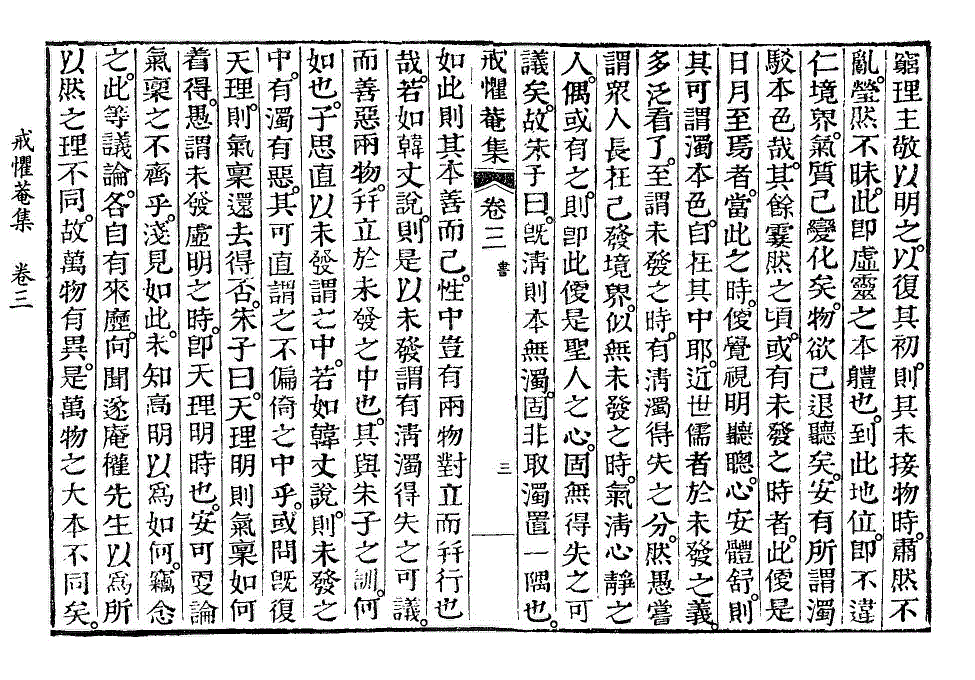 窮理主敬以明之。以復其初。則其未接物時。肅然不
亂。瑩然不昧。此卽虛靈之本軆也。到此地位。卽不違
仁境界。氣質已變化矣。物欲已退聽矣。安有所謂濁
駁本色哉。其餘霎然之頃。或有未發之時者。此便是
日月至焉者。當此之時。便覺視明聽聰。心安體舒。則
其可謂濁本色。自在其中耶。近世儒者於未發之義。
多泛看了。至謂未發之時。有淸濁得失之分。然愚嘗
謂衆人長在已發境界。似無未發之時。氣淸心靜之
人。偶或有之。則卽此便是聖人之心。固無得失之可
議矣。故朱子曰。旣淸則本無濁。固非取濁置一隅也。
戒懼菴集 卷三 書 三
如此則其本善而已。性中豈有兩物對立而幷行也
哉。若如韓丈說。則是以未發謂有淸濁得失之可議。
而善惡兩物。幷立於未發之中也。其與朱子之訓。何
如也。子思直以未發謂之中。若如韓丈說。則未發之
中。有濁有惡。其可直謂之不偏倚之中乎。或問旣復
天理。則氣稟還去得否。朱子曰。天理明則氣稟如何
着得。愚謂未發虛明之時。卽天理明時也。安可更論
氣稟之不齊乎。淺見如此。未知高明以爲如何。竊念
之。此等議論。各自有來歷。向聞遂庵權先生以爲所
以然之理不同。故萬物有異。是萬物之大本不同矣。
戒懼菴集 卷三